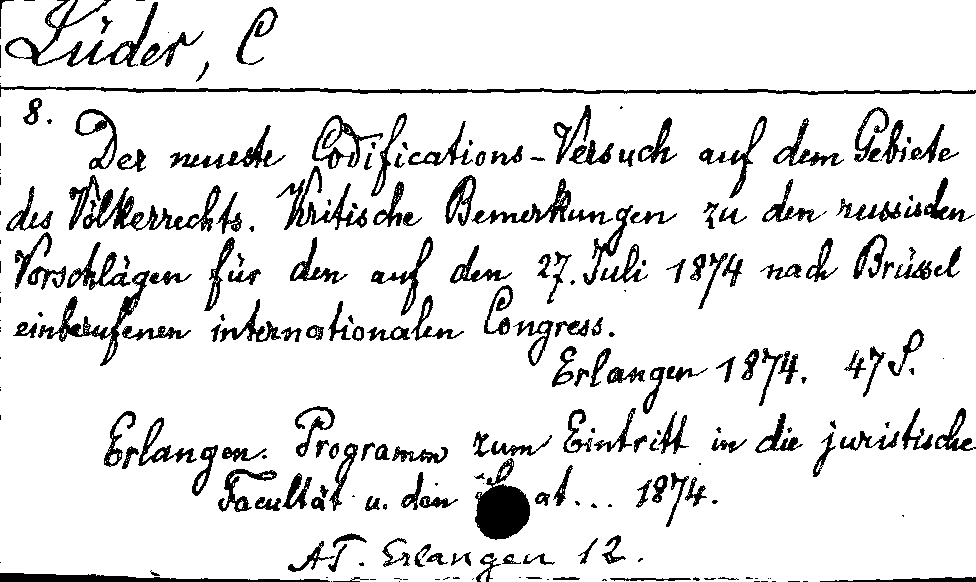 Lüder, C
8.
Der neueste Codifications-Versuch auf dem Gebiete
des Völkerrechts. Kritische Bemerkungen zu den russischen
Vorschlägen für den auf den 27. Juli 1874 nach Brüssel
einberufenen internationalen Congress.
Erlangen 1874. 47 S.
Erlangen. Programm zum Eintritt in die juristische
Facultät u. den at... 1874.
AT. Erlangen 12.